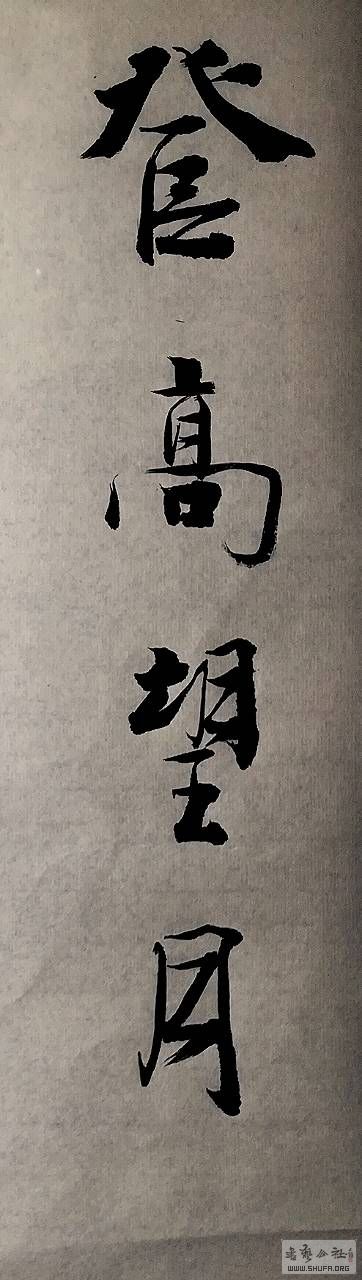 登高望月
书艺公社
WWW.SHUFA.ORG